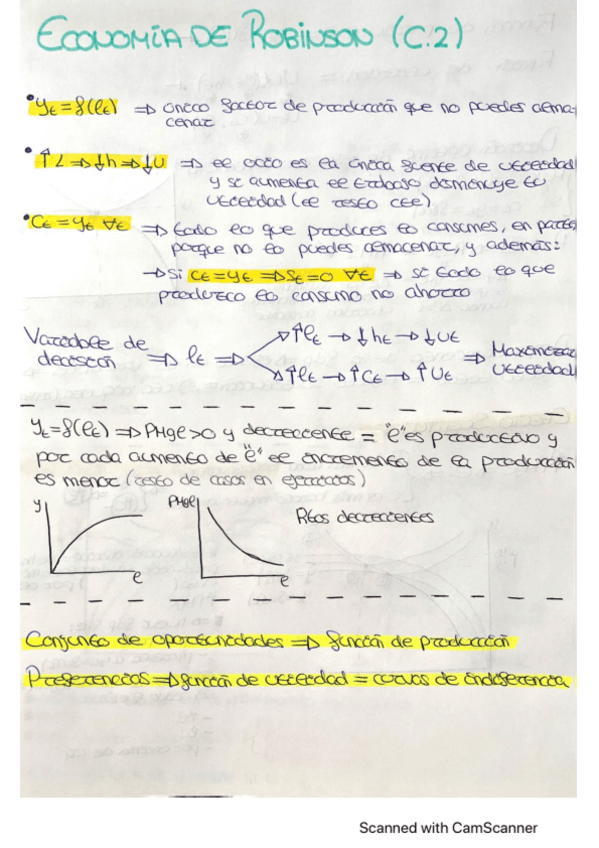 ECONOMÍA DE ROBINSON (C.2)
• yt = f(lt) ⇒ único factor de producción que no puedes alma-
cenar
• ↑L ⇒ ↓h ⇒ ↓U ⇒ el ocio es la única fuente de utilidad
y si aumenta el trabajo disminuye tu
utilidad (el resto CTE)
• Ct = yt ∀t ⇒ todo lo que produces lo consumes, en parte
porque no lo puedes almacenar, y además:
→ Si Ct = yt ⇒ St = 0 ∀t ⇒ si todo lo que
produzco lo consumo no ahorro
Variable de
decisión ⇒ lt ⇒
↑lt → ↓ht → ↓Ut
↑lt → ↑Ct → ↑Ut
⇒ Maximizar
utilidad
yt = f(lt) ⇒ PMgl > 0 y decreciente = "l" es productivo y
por cada aumento de "l" el incremento de la producción
es menor (resto de casos en ejercicios)
y
l
PMgl
l
Rtos decrecientes
Conjunto de oportunidades ⇒ función de producción
Preferencias ⇒ función de utilidad = curvas de indiferencia
Scanned with CamScanner